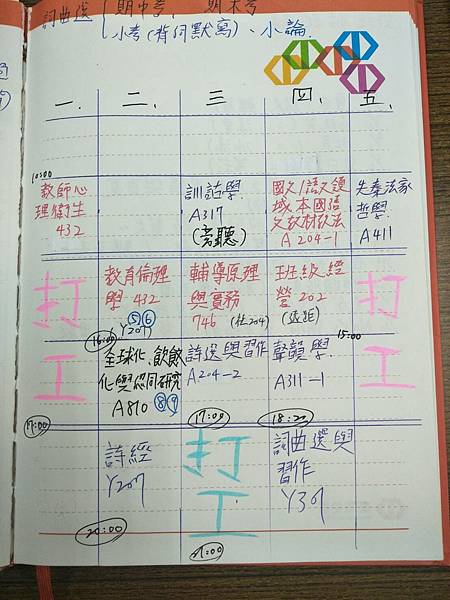 詞曲選 { 期中考, 期末考
小考(背詞默寫)、小論.
一. 二、 三 四、 五、
10:00
教師心
理衛生
432
訓詁學.
A317
(旁聽)
國文/語文領
域本國語
文教材教法
A204-1
先秦法家
哲學.
A411
打
工
教育倫理
學 432
⑤⑥
Y207
16:00
輔導原理
與實務
746
班級經
營 202
打
工
15:00
17:00
全球化、飲食
化與認同研究
A810 ⑧⑨
詩選與習作
A204-2
17:00
聲韻學.
A311-1
詩經
Y207
20:00
打
工
21:00
詞曲選與
習作
Y301